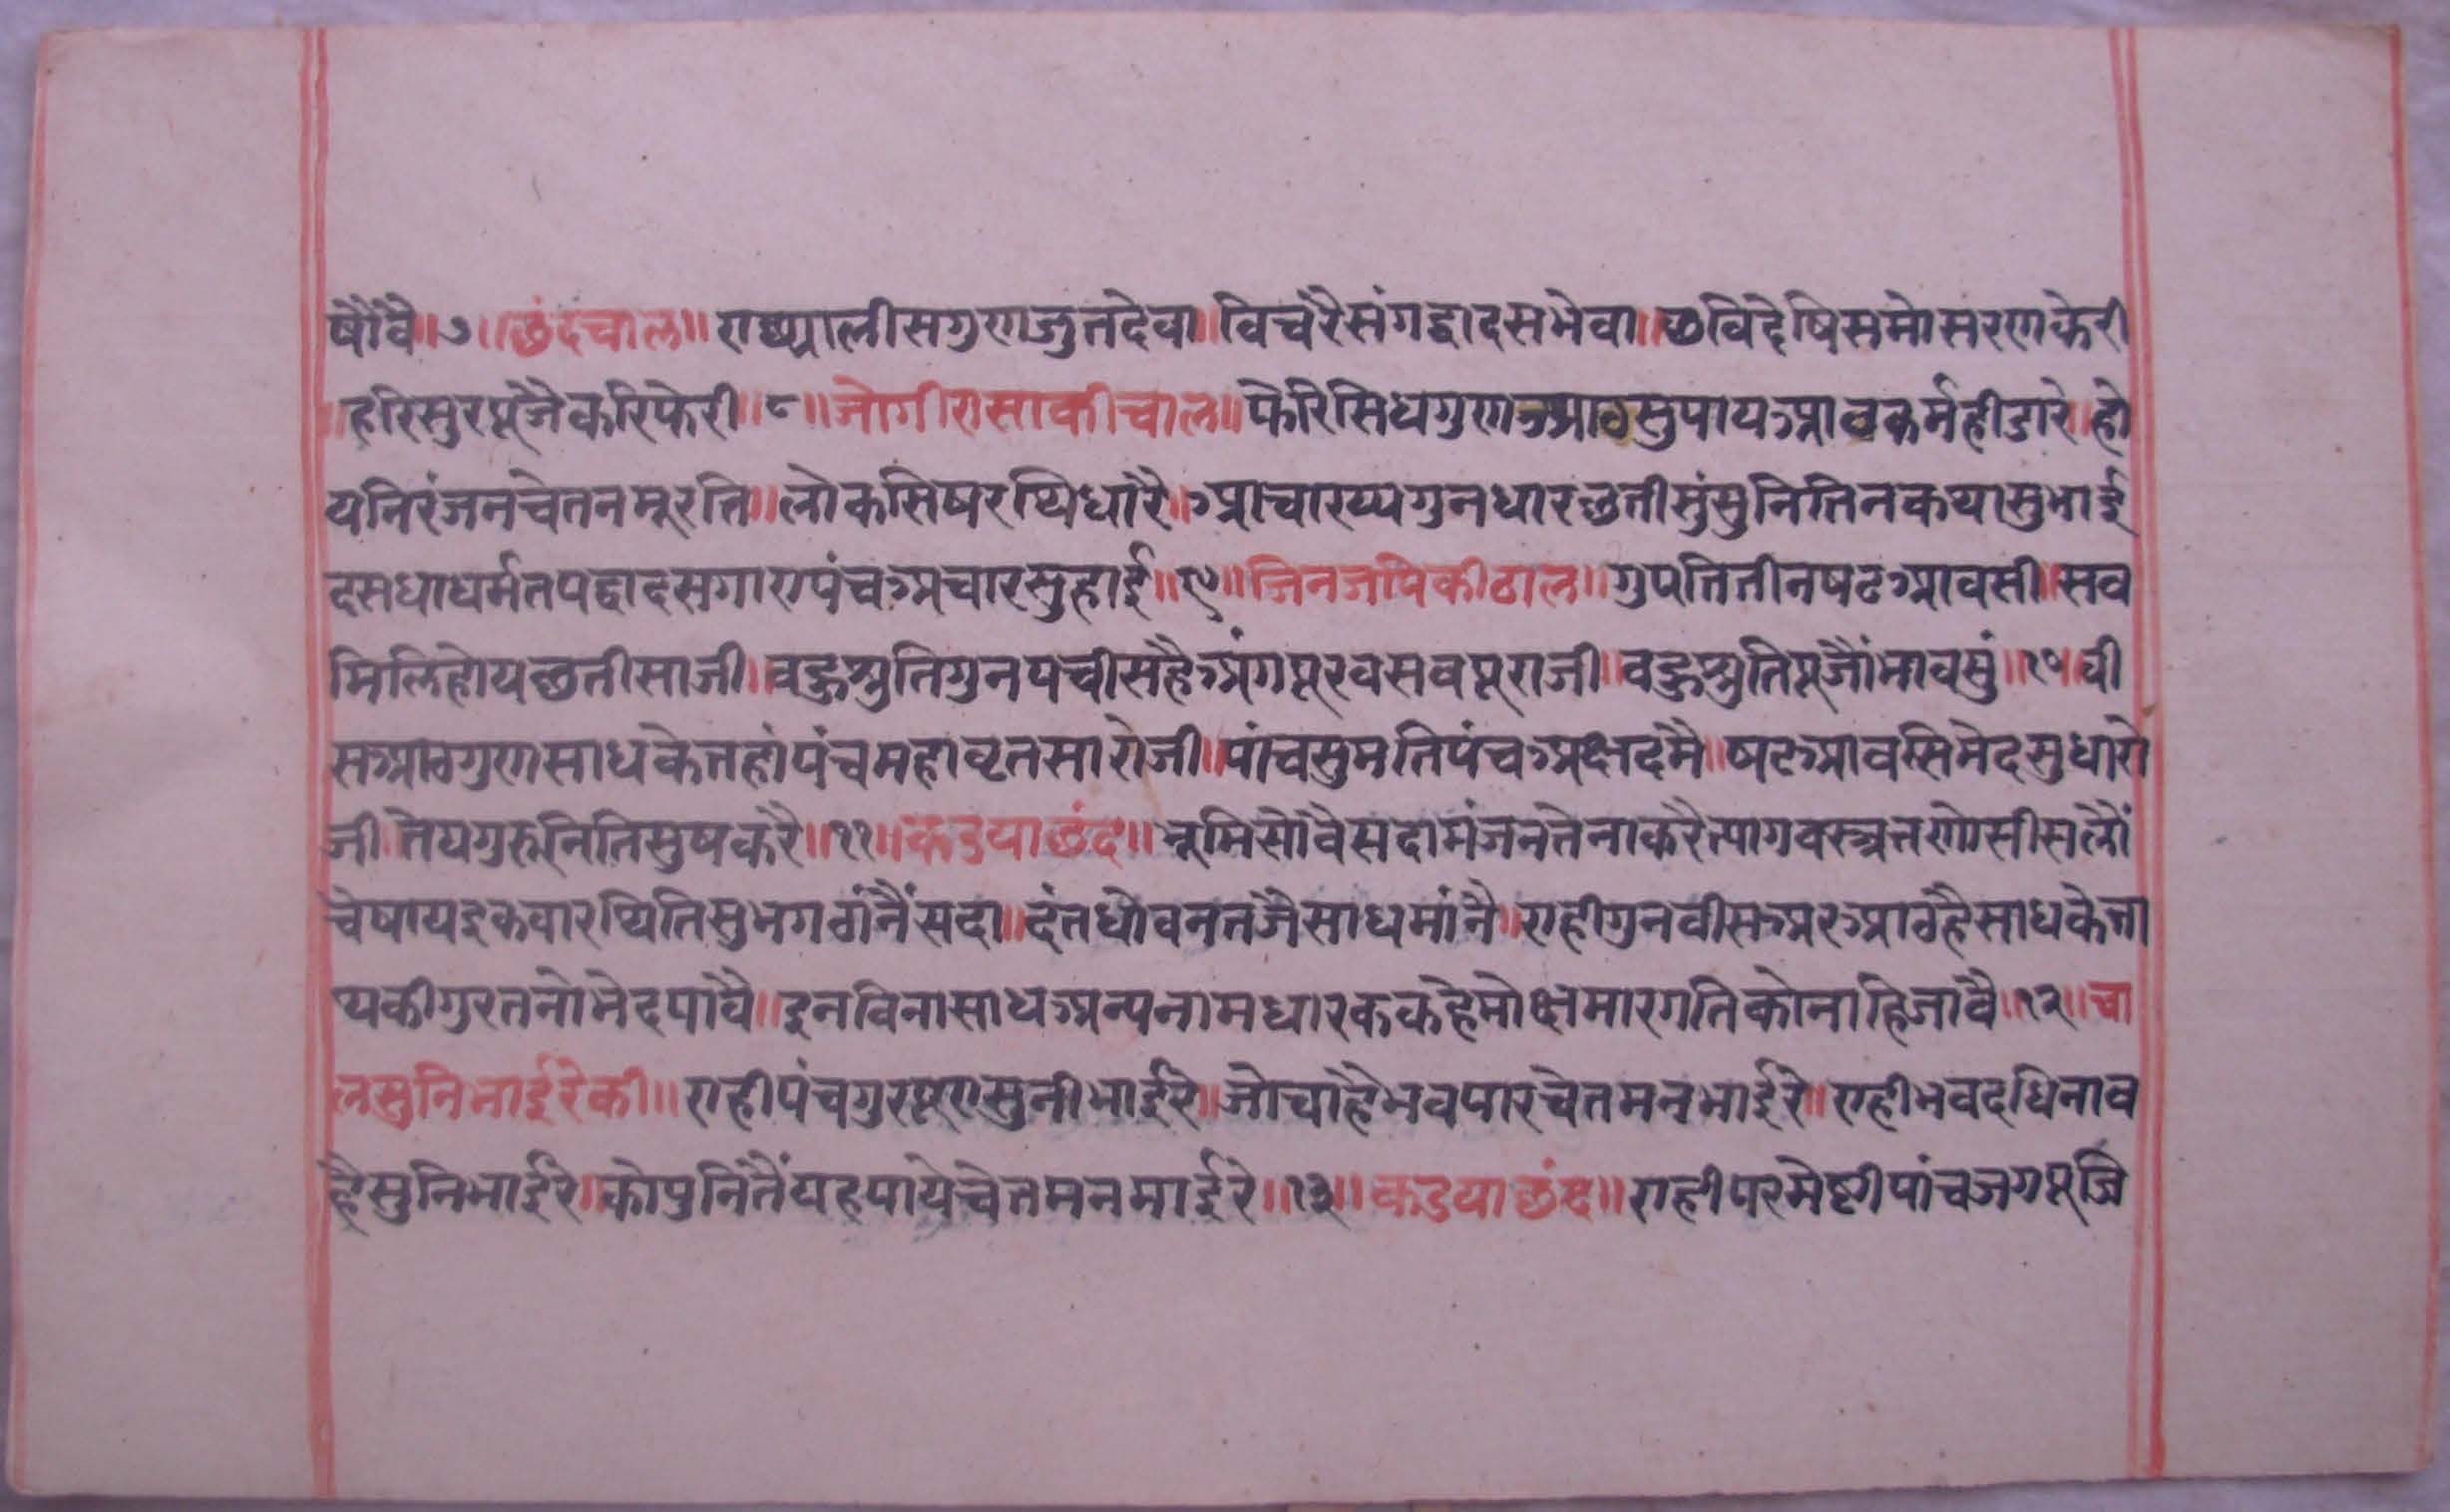 षोवै॥७॥छंदचाल॥एछ्यालीसगुणजुतदेवा॥विचरैसंगद्वादसभेवा॥छविदेषिसमोसरणकेरी
॥हरिसुरपूजैकरिफेरी॥८॥जोगीरासाकीचाल॥फेरिसिधगुणआठसुपायआठकर्महीडारे॥हो
यनिरंजनचेतनमूरति॥लोकसिषरथिधारै॥आचारय्यगुनधारछतीसुंसुनितिनकथासुभाई
दसधाधर्मतपद्वादसगाएपंचअचारसुहाई॥९॥जिनजपिकीढाल॥गुपतितीनषटआवसी॥सव
मिलिहोयछतीसाजी॥वहुश्रुतिगुनपचीसहैअंगपूरवसवपूराजी॥वहुश्रुतिपूजौंभावसुं॥१०॥वी
सआठगुणसाधकेतहांपंचमहावृतसारोजी॥पांचसुमतिपंचअक्षदमै॥षटआवस्सिभेदसुधारो
जी॥तेयगुरुनितिसुषकरै॥११॥कडषाछंद॥भूमिसोवैसदामंजनतेनाकरैत्यागवस्त्रतणोसीसलौं
चेषायइकवारथितिसुभगठांनैंसदा॥दंतधोवनतजैसाधमांनै॥एहीगुनवीसअरआठहैसाधकेता
यकीगुरतनोभेदपावै॥इनविनासाधअन्यनामधारककहेमोक्षमारगतिकोनाहिजावै॥१२॥चा
लसुनिभाईरेकी॥एहीपंचगुरपूएसुनीभाईरे॥जोचाहैभवपारचेतमनभाईरे॥एहीभवदधिनाव
हैसुनिभाईरे॥कोपुनिंतैंयहपायेचेतमनभाईरे॥१३॥कडषाछंद॥एहीपरमेष्टीपांचजगपूजि